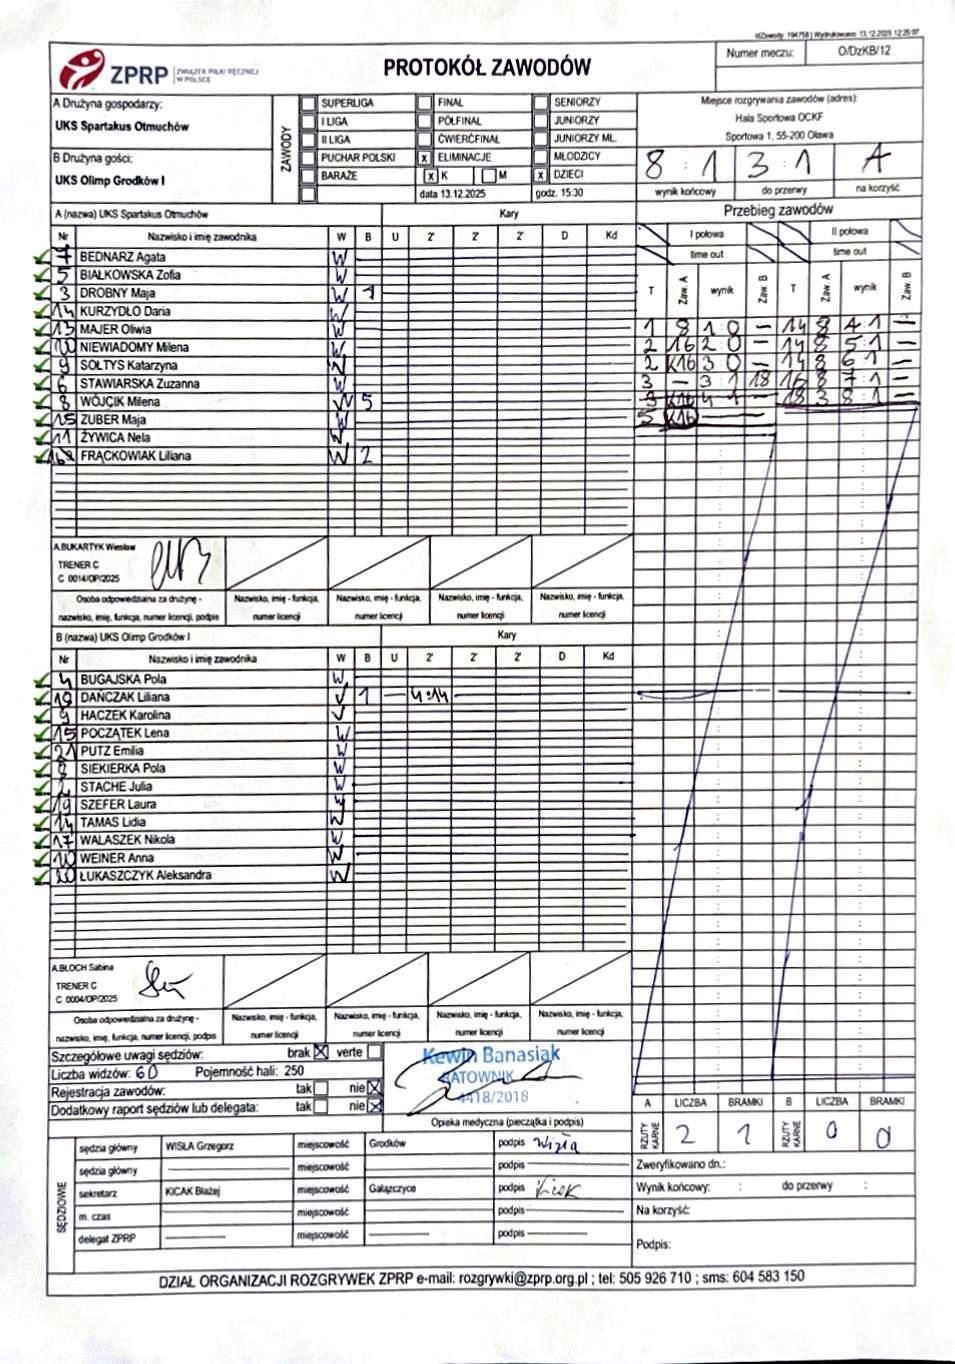 idZawody: 194758 | Wydrukowano: 13.12.2025 12:25:07
ZPRP ZWIĄZEK PIŁKI RĘCZNEJ W POLSCE
PROTOKÓŁ ZAWODÓW
Numer meczu: O/DzKB/12
A Drużyna gospodarzy:
UKS Spartakus Otmuchów
B Drużyna gości:
UKS Olimp Grodków I
ZAWODY
SUPERLIGA FINAŁ SENIORZY
I LIGA PÓŁFINAŁ JUNIORZY
II LIGA ĆWIERĆFINAŁ JUNIORZY MŁ.
PUCHAR POLSKI x ELIMINACJE MŁODZICY
BARAŻE x K M x DZIECI
data 13.12.2025 godz. 15:30
Miejsce rozgrywania zawodów (adres):
Hala Sportowa OCKF
Sportowa 1, 55-200 Oława
8 : 1 3 : 1 A
wynik końcowy do przerwy na korzyść
A (nazwa) UKS Spartakus Otmuchów Kary
Nr Nazwisko i imię zawodnika W B U 2' 2' 2' D Kd
7 BEDNARZ Agata W
5 BIAŁKOWSKA Zofia W
3 DROBNY Maja W 1
14 KURZYDŁO Daria W
13 MAJER Oliwia W
10 NIEWIADOMY Milena W
9 SOŁTYS Katarzyna W
6 STAWIARSKA Zuzanna W
8 WÓJCIK Milena W 5
15 ZUBER Maja W
11 ŻYWICA Nela W
FRĄCKOWIAK Liliana W 2
A.BUKARTYK Wiesław
TRENER C
C 0014/OP/2025
Osoba odpowiedzialna za drużynę - nazwisko, imię, funkcja, numer licencji, podpis
Nazwisko, imię - funkcja, numer licencji
Nazwisko, imię - funkcja, numer licencji
Nazwisko, imię - funkcja, numer licencji
Nazwisko, imię - funkcja, numer licencji
B (nazwa) UKS Olimp Grodków I Kary
Nr Nazwisko i imię zawodnika W B U 2' 2' 2' D Kd
4 BUGAJSKA Pola W
DAŃCZAK Liliana 1 — 4:14
9 HACZEK Karolina
15 POCZĄTEK Lena W
21 PUTZ Emilia W
SIEKIERKA Pola W
2 STACHE Julia W
19 SZEFER Laura W
14 TAMAS Lidia W
17 WALASZEK Nikola W
10 WEINER Anna W
20 ŁUKASZCZYK Aleksandra W
A.BŁOCH Sabina
TRENER C
C 0004/OP/2025
Osoba odpowiedzialna za drużynę - nazwisko, imię, funkcja, numer licencji, podpis
Nazwisko, imię - funkcja, numer licencji
Nazwisko, imię - funkcja, numer licencji
Nazwisko, imię - funkcja, numer licencji
Nazwisko, imię - funkcja, numer licencji
Przebieg zawodów
I połowa II połowa
time out time out
T Zaw. A wynik Zaw. B T Zaw. A wynik Zaw. B
1 8 1 0 — 14 8 4 1 —
2 16 2 0 — 14 8 5 1 —
2 K16 3 0 — 14 8 6 1 —
3 — 3 1 18 16 8 7 1 —
18 3 8 1 —
5 K16
Szczegółowe uwagi sędziów: brak x verte
Liczba widzów: 60 Pojemność hali: 250
Rejestracja zawodów: tak nie x
Dodatkowy raport sędziów lub delegata: tak nie x
Kewin Banasiak
RATOWNIK
4418/2018
Opieka medyczna (pieczątka i podpis)
A LICZBA BRAMKI B LICZBA BRAMKI
RZUTY KARNE 2 1 RZUTY KARNE 0 0
SĘDZIOWIE
sędzia główny WISŁA Grzegorz miejscowość Grodków podpis Wisła
sędzia główny miejscowość podpis
sekretarz KICAK Błażej miejscowość Gałązczyce podpis Kicak
m. czas miejscowość podpis
delegat ZPRP miejscowość podpis
Zweryfikowano dn.:
Wynik końcowy: : do przerwy :
Na korzyść:
Podpis:
DZIAŁ ORGANIZACJI ROZGRYWEK ZPRP e-mail: rozgrywki@zprp.org.pl ; tel: 505 926 710 ; sms: 604 583 150